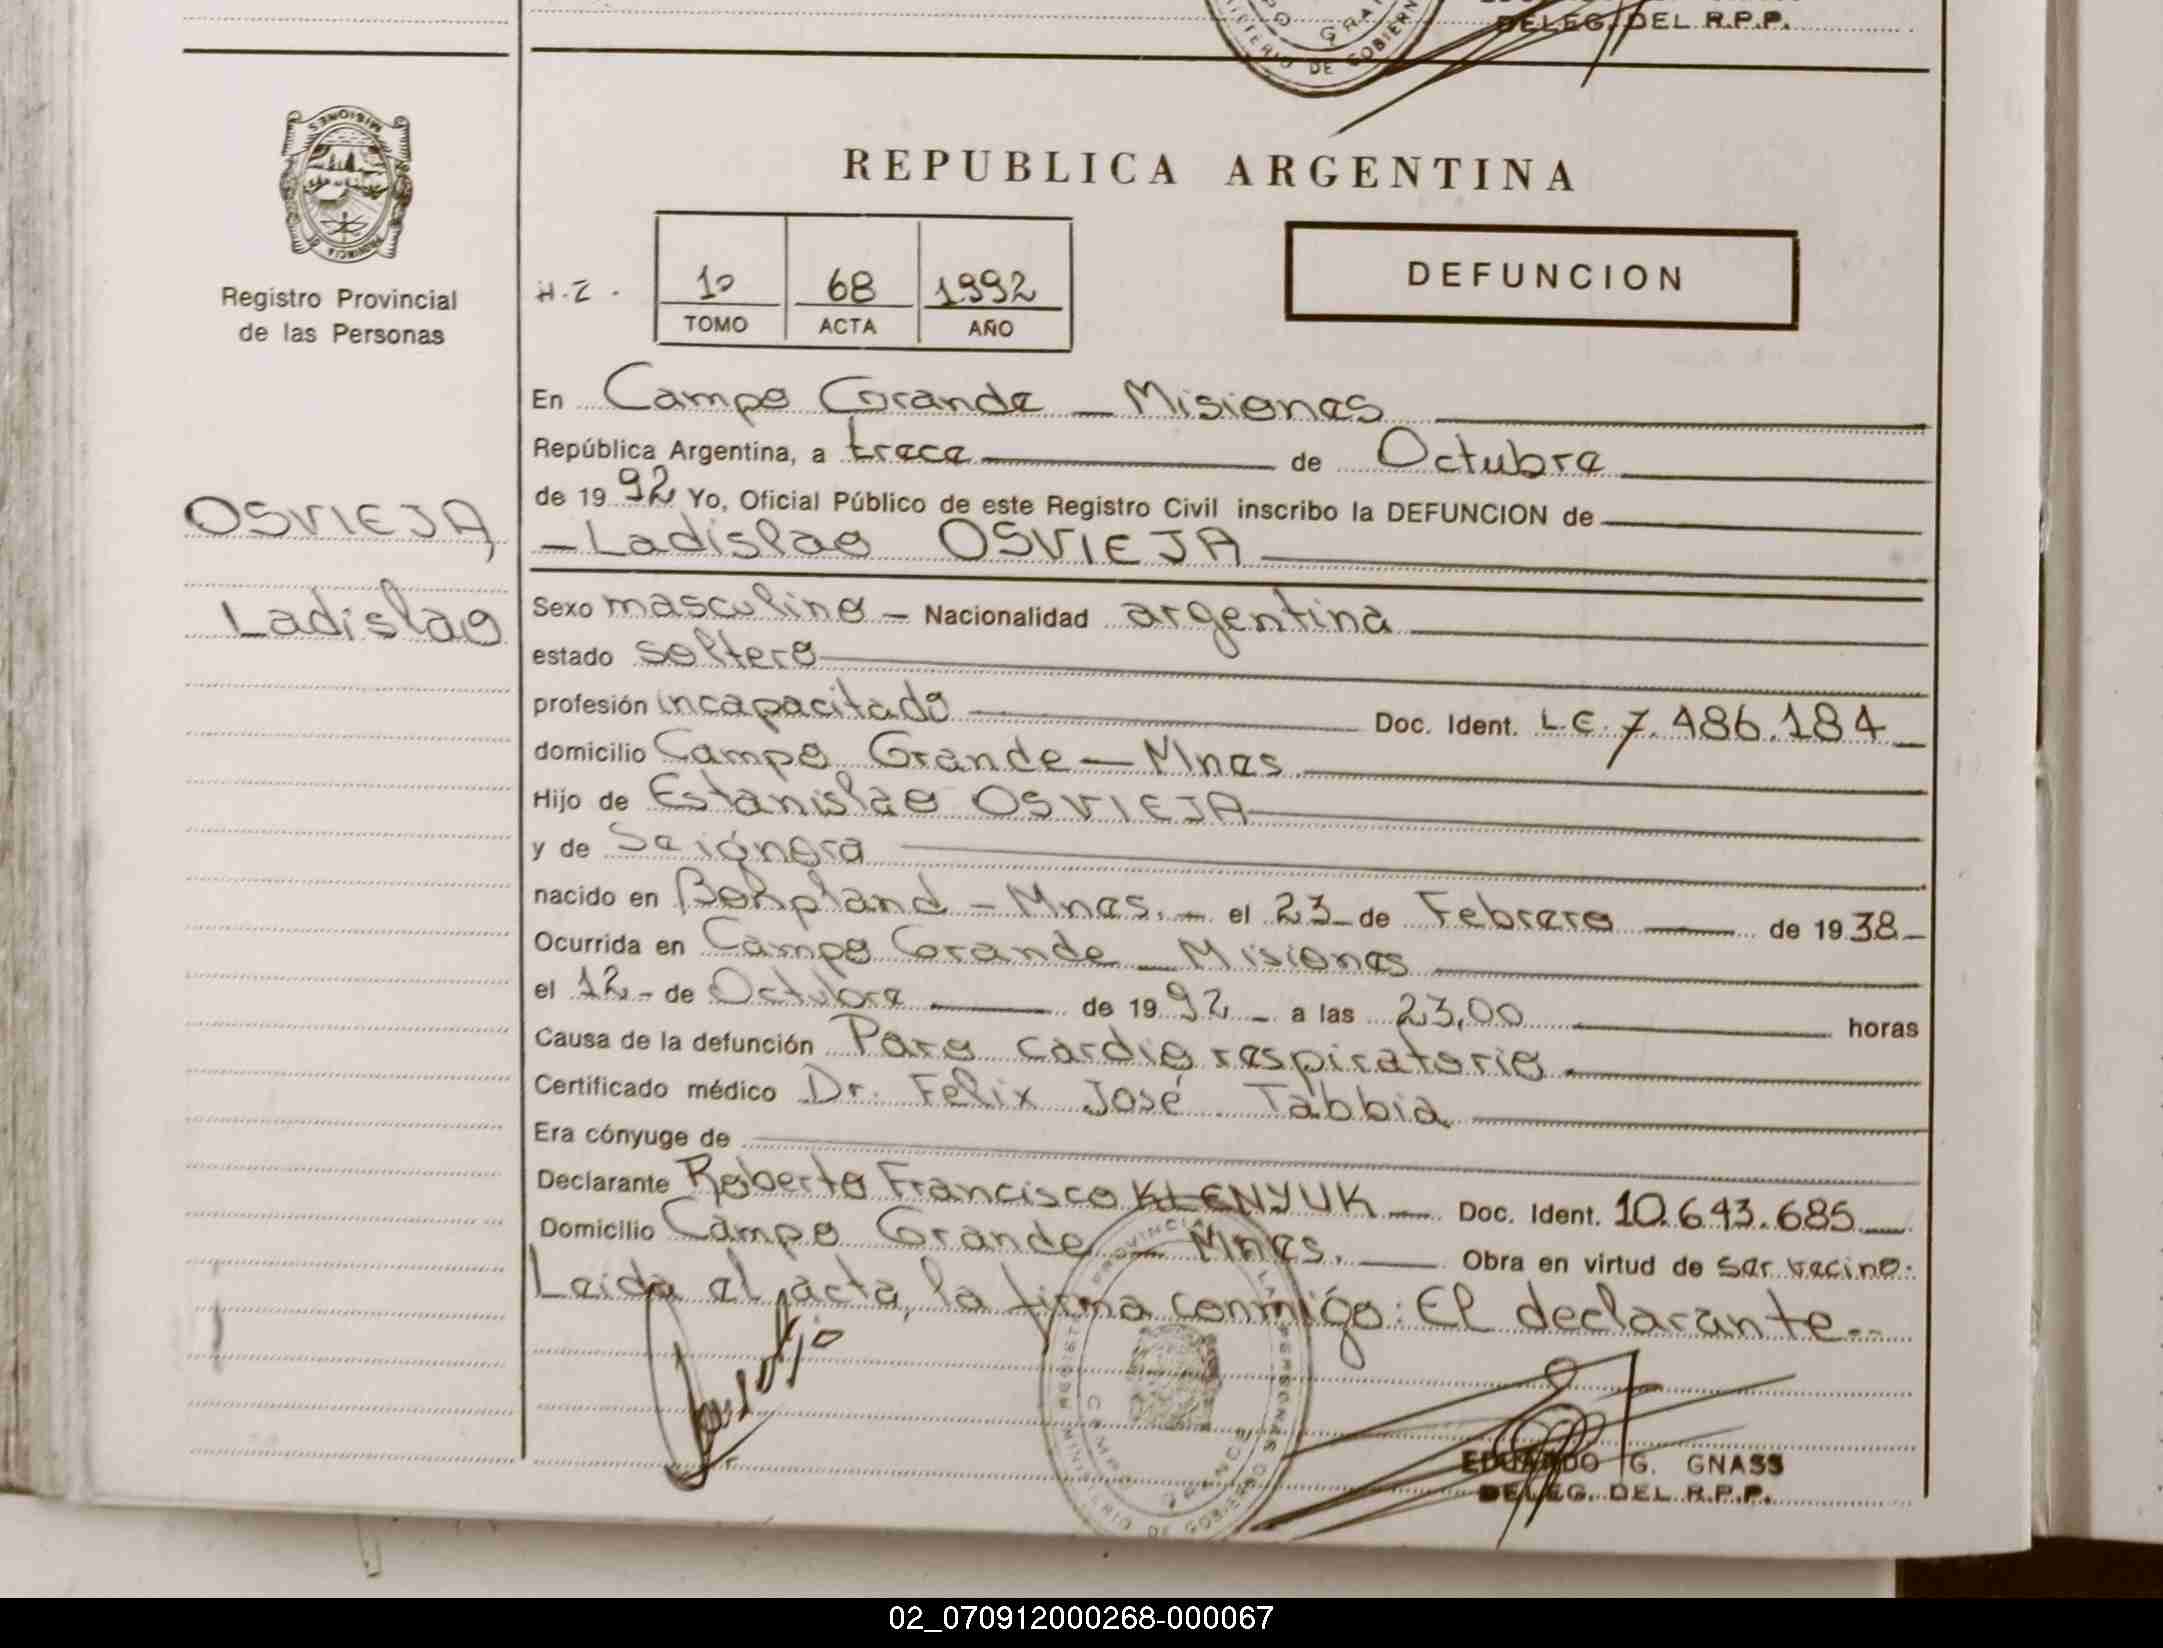 DELEG. DEL R.P.P.
MISIONES
PROVINCIA DE
Registro Provincial
de las Personas
OSVIEJA,
Ladislao
REPUBLICA ARGENTINA
10 68 1992
TOMO ACTA AÑO
DEFUNCION
En Campo Grande — Misiones
República Argentina, a trece de Octubre
de 1992 Yo, Oficial Público de este Registro Civil inscribo la DEFUNCION de
— Ladislao OSVIEJA
Sexo masculino — Nacionalidad argentina
estado soltero
profesión incapacitado Doc. Ident. L.E. 7.486.184
domicilio Campo Grande — Mnes
Hijo de Estanislao OSVIEJA
y de Se ignora
nacido en Bonpland — Mnes. — el 23 — de Febrero de 1938 —
Ocurrida en Campo Grande — Misiones
el 12 — de Octubre de 1992 — a las 23,00 horas
Causa de la defunción Paro cardio respiratorio.
Certificado médico Dr. Felix José Tabbia
Era cónyuge de
Declarante Roberto Francisco KLENYUK — Doc. Ident. 10.643.685
Domicilio Campo Grande — Mnes. Obra en virtud de ser vecino.
Leida el acta, la firma conmigo: El declarante.--
REGISTRO PROVINCIAL DE LAS PERSONAS
MINISTERIO DE GOBIERNO
CAMPO GRANDE
EDUARDO G. GNASS
DELEG. DEL R.P.P.
02_070912000268-000067